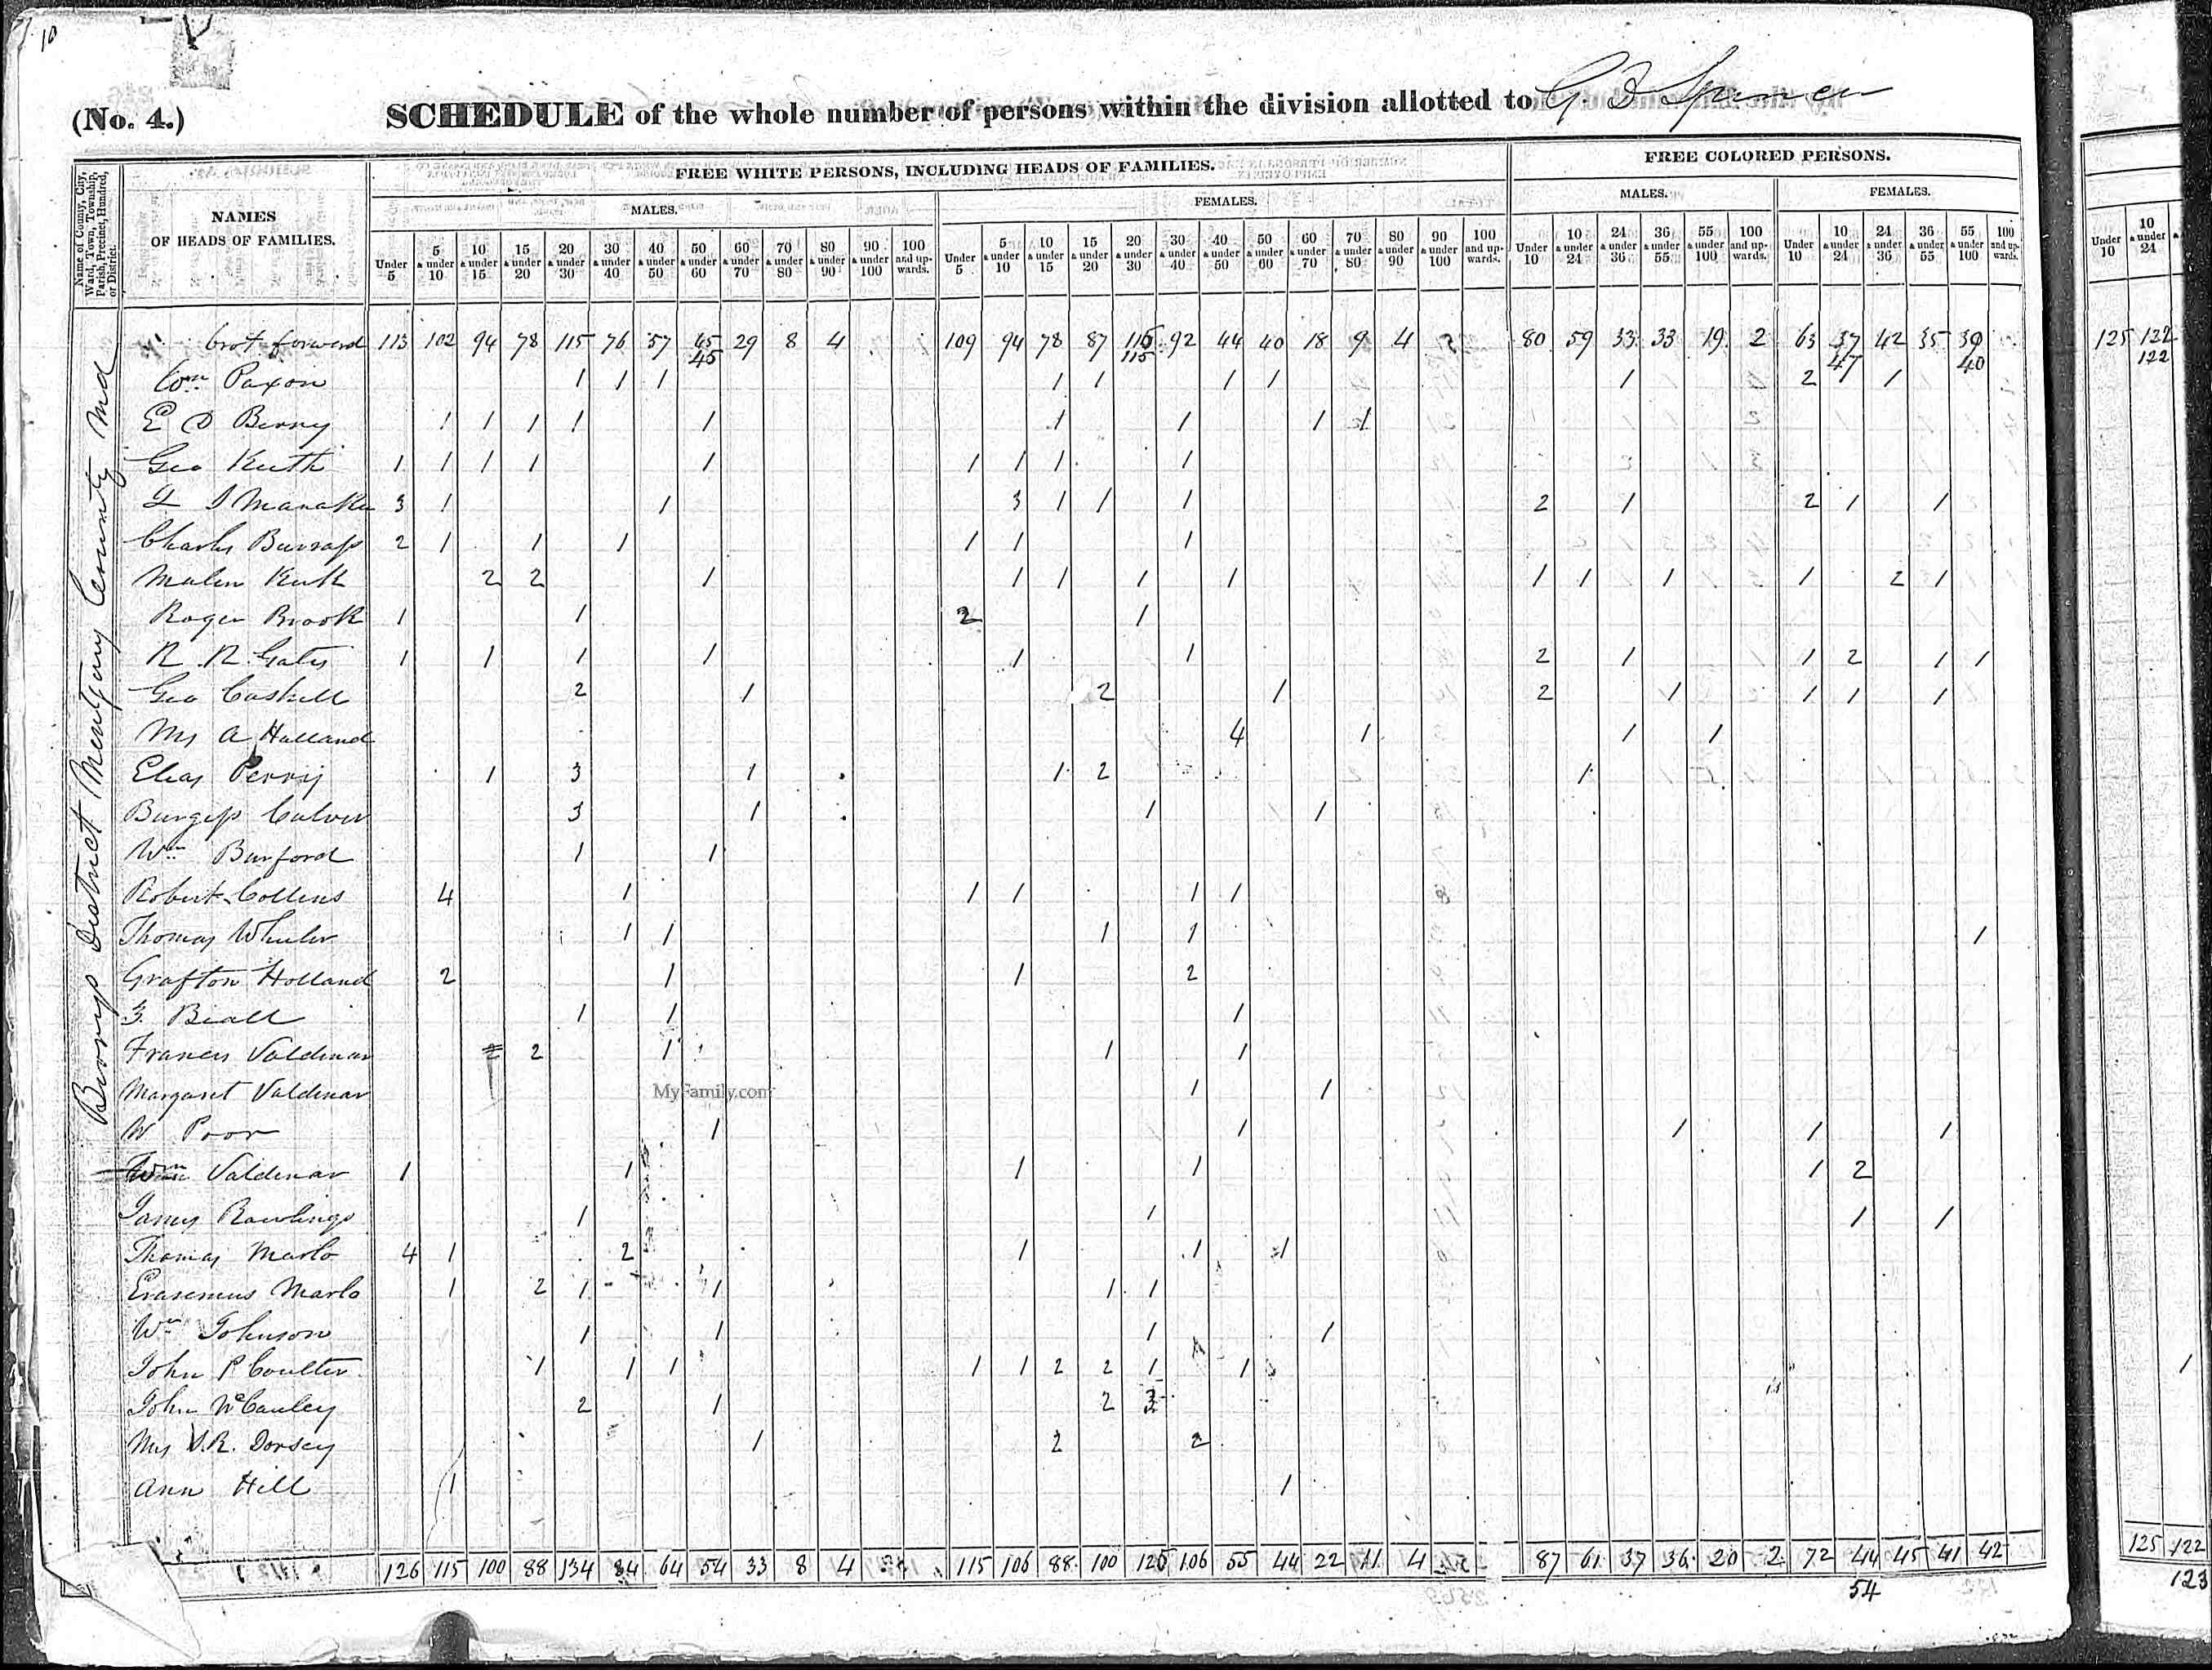 10
(No. 4.) SCHEDULE of the whole number of persons within the division allotted to G. D Spencer
Name of County, City, Ward, Town, Township, Parish, Precinct, Hundred, or District.
NAMES OF HEADS OF FAMILIES.
FREE WHITE PERSONS, INCLUDING HEADS OF FAMILIES.
FREE COLORED PERSONS.
MALES. FEMALES. MALES. FEMALES.
Under 5 5 & under 10 10 & under 15 15 & under 20 20 & under 30 30 & under 40 40 & under 50 50 & under 60 60 & under 70 70 & under 80 80 & under 90 90 & under 100 100 and up-wards.
Under 5 5 & under 10 10 & under 15 15 & under 20 20 & under 30 30 & under 40 40 & under 50 50 & under 60 60 & under 70 70 & under 80 80 & under 90 90 & under 100 100 and up-wards.
Under 10 10 & under 24 24 & under 36 36 & under 55 55 & under 100 100 and up-wards.
Under 10 10 & under 24 24 & under 36 36 & under 55 55 & under 100 100 and up-wards.
Under 10 10 & under 24
Berrys District Montgomy County Md
brot forward 113 102 94 78 115 76 57 45 29 8 4 109 94 78 87 115 92 44 40 18 9 4 80 59 33 33 19 2 63 37 42 35 39 125 122
45 115 47 40 122
Wm Paxon 1 1 1 1 1 1 1 1 2 1 1
E D Berry 1 1 1 1 1 1 1 1 1
Geo Keith 1 1 1 1 1 1 1 1 1
3 1 1 3 1 1 1 2 1 2 1 1
Charles Burrass 2 1 1 1 1 1 1
2 2 1 1 1 1 1 1 1 1 1 2 1
Roger Brook 1 1 2 1
R. R. Gates 1 1 1 1 1 1 2 1 1 2 1 1
Geo Caskell 2 1 2 1 2 1 1 1 1
Mrs A Holland 4 1 1 1
Elias Perry 1 3 1 1 2 1
Burgess Culver 3 1 1 1
Wm Burford 1 1
Robert Collins 4 1 1 1 1 1
Thomas Wheeler 1 1 1 1 1
Grafton Holland 2 1 1 2
Beall 1 1 1
Francis Valdenar 2 2 1 1 1
Margaret Valdenar 1 1
MyFamily.com
W Poor 1 1 1 1 1
Wm Valdenar 1 1 1 1 1 2
James Rawlings 1 1 1 1
Thomas Marlo 4 1 2 1 1 1
Erasemus Marlo 1 2 1 1 1 1
Wm Johnson 1 1 1 1
John P Coulter 1 1 1 1 1 2 2 1 1 1
John McCauley 2 1 2 3
Mrs S. R. Dorsey 1 2 2
Ann Hill 1 1
126 115 100 88 134 84 64 54 33 8 4 115 106 88 100 125 106 55 44 22 11 4 87 61 37 36 20 2 72 44 45 41 42 125 122
54 123